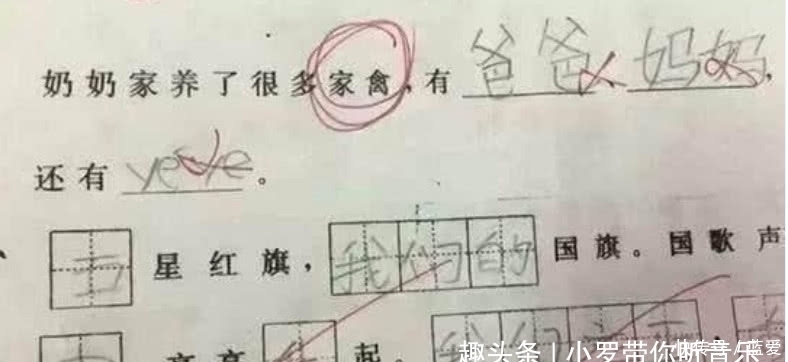 奶奶家养了很多家禽,有 爸爸、妈妈,
还有 yeye。
五星红旗,我们的国旗。国歌声
高高 起。我们
趣头条 | 小罗带你听音乐